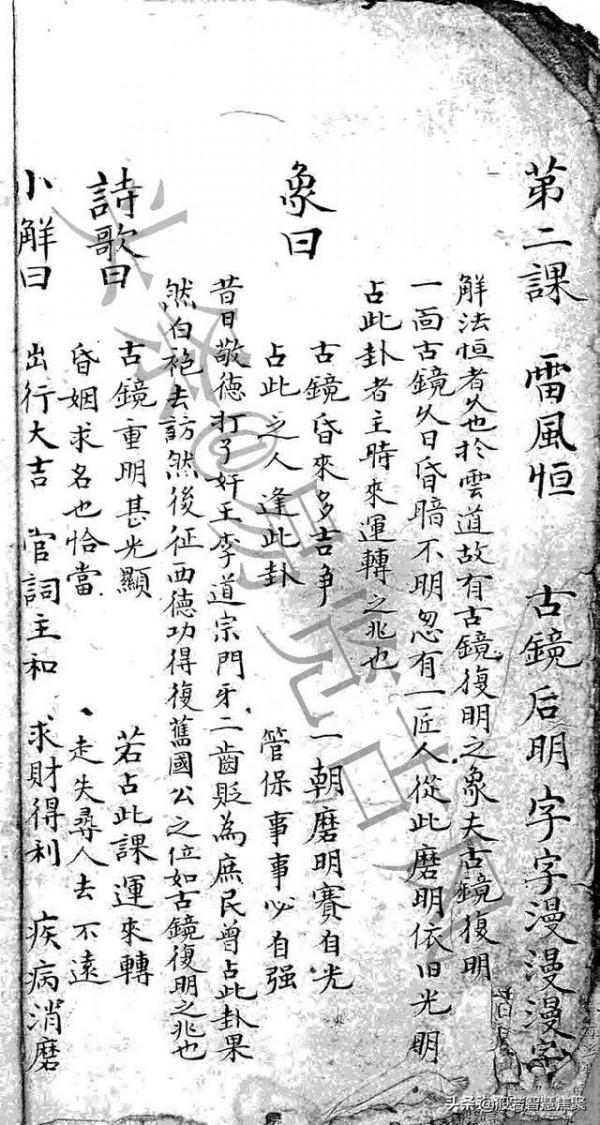 第二課 雷風恒 古鏡后明 字字漫漫漫字
解法恒者久也於雲道故有古鏡復明之象夫古鏡復明
一面古鏡久日昏暗不明忽有一匠人從此磨明依旧光明
占此卦者主時來運轉之兆也
象曰 古鏡昏來多吉爭 一朝磨明賽自光
占此之人逢此卦 管保事事必自强
昔日敬德打了奸王李道宗門牙二齒貶為庶民曾占此卦果
然白袍去訪然後征西德功得復舊國公之位如古鏡復明之兆也
詩歌曰 古鏡重明甚光顯 若占此課運來轉
昏姻求名也恰當 走失尋人去不遠
小解曰 出行大吉 官詞主和 求財得利 疾病消磨
头条@易虎古文
头条@般若智慧集聚